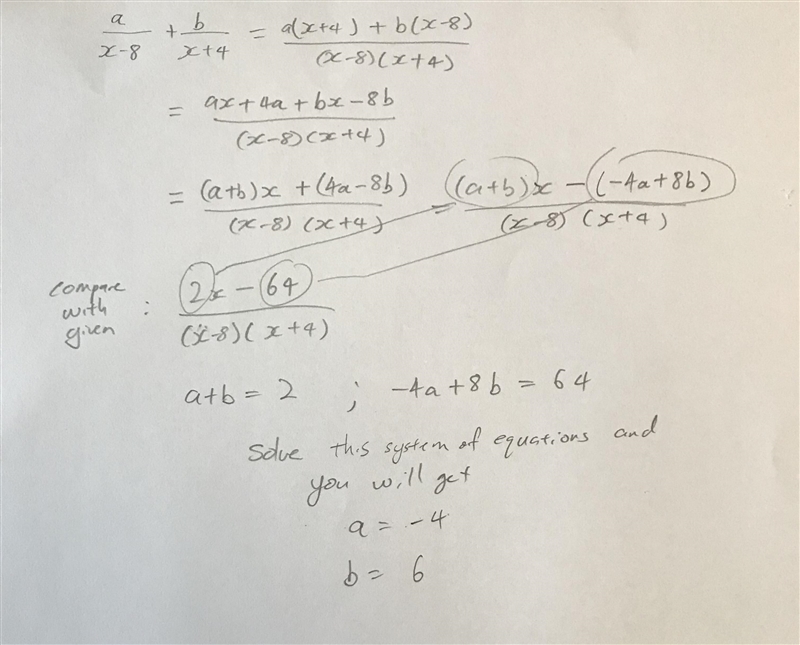 a/(x-8) + b/(x+4) = (a(x+4) + b(x-8))/((x-8)(x+4))
= (ax+4a+bx-8b)/((x-8)(x+4))
= ((a+b)x + (4a-8b))/((x-8)(x+4)) = ((a+b)x - (-4a+8b))/((x-8)(x+4))
compare with given : (2x - 64)/((x-8)(x+4))
a+b = 2 ; -4a+8b = 64
Solve this system of equations and
you will get
a = -4
b = 6